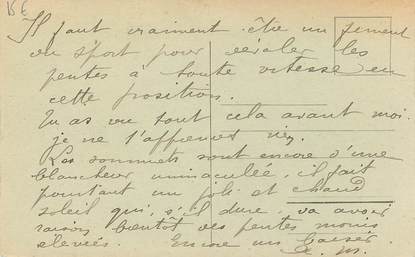 15 €
Il faut vraiment être un fervent
du sport pour dévaler les
pentes à toute vitesse en
cette position.
Tu as vu tout cela avant moi
je ne t'apprends rien
Les sommets sont encore d'une
blancheur immaculée, il fait
pourtant un joli et chaud
soleil qui, s'il dure, va avoir
raison bientôt des pentes moins
élevées. Encore un baiser.